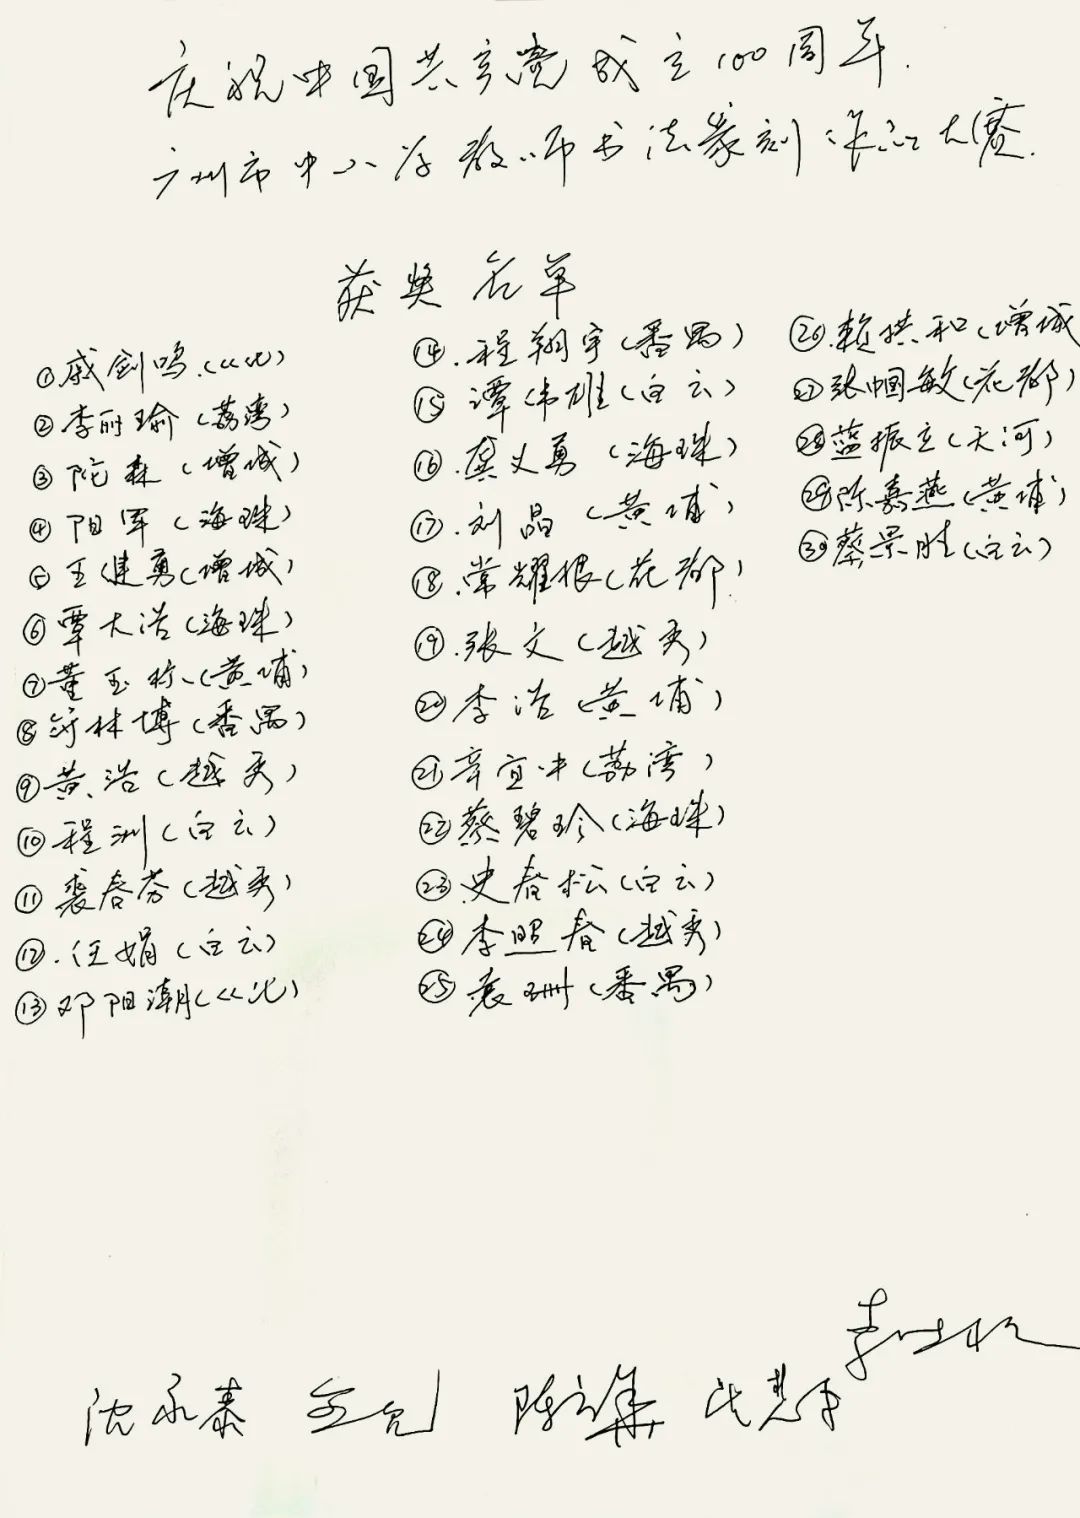 庆祝中国共产党成立100周年.
广州市中小学教师书法篆刻作品大赛.
获奖名单
①戚剑鸣.(从化)
②李丽瑜(荔湾)
③陀森(增城)
④阳军(海珠)
⑤王健勇(增城)
⑥覃大浩(海珠)
⑦董玉(黄埔)
⑧林博(番禺)
⑨黄浩(越秀)
⑩程洲(白云)
⑪裘春芬(越秀)
⑫.任娟(白云)
⑬邓阳潮(从化)
⑭.程翔宇(番禺)
⑮谭伟雄(白云)
⑯.龚义勇(海珠)
⑰.刘晶(黄埔)
⑱.常耀根(花都)
⑲.张文(越秀)
⑳李浩(黄埔)
㉑辛宜中(荔湾)
㉒蔡碧珍(海珠)
㉓史春松(白云)
㉔李照春(越秀)
㉕袁珊(番禺)
㉖.赖洪和(增城
㉗张帼敏(花都)
㉘蓝振立(天河)
㉙陈嘉燕(黄埔)
㉚蔡景胜(白云)
沈永泰